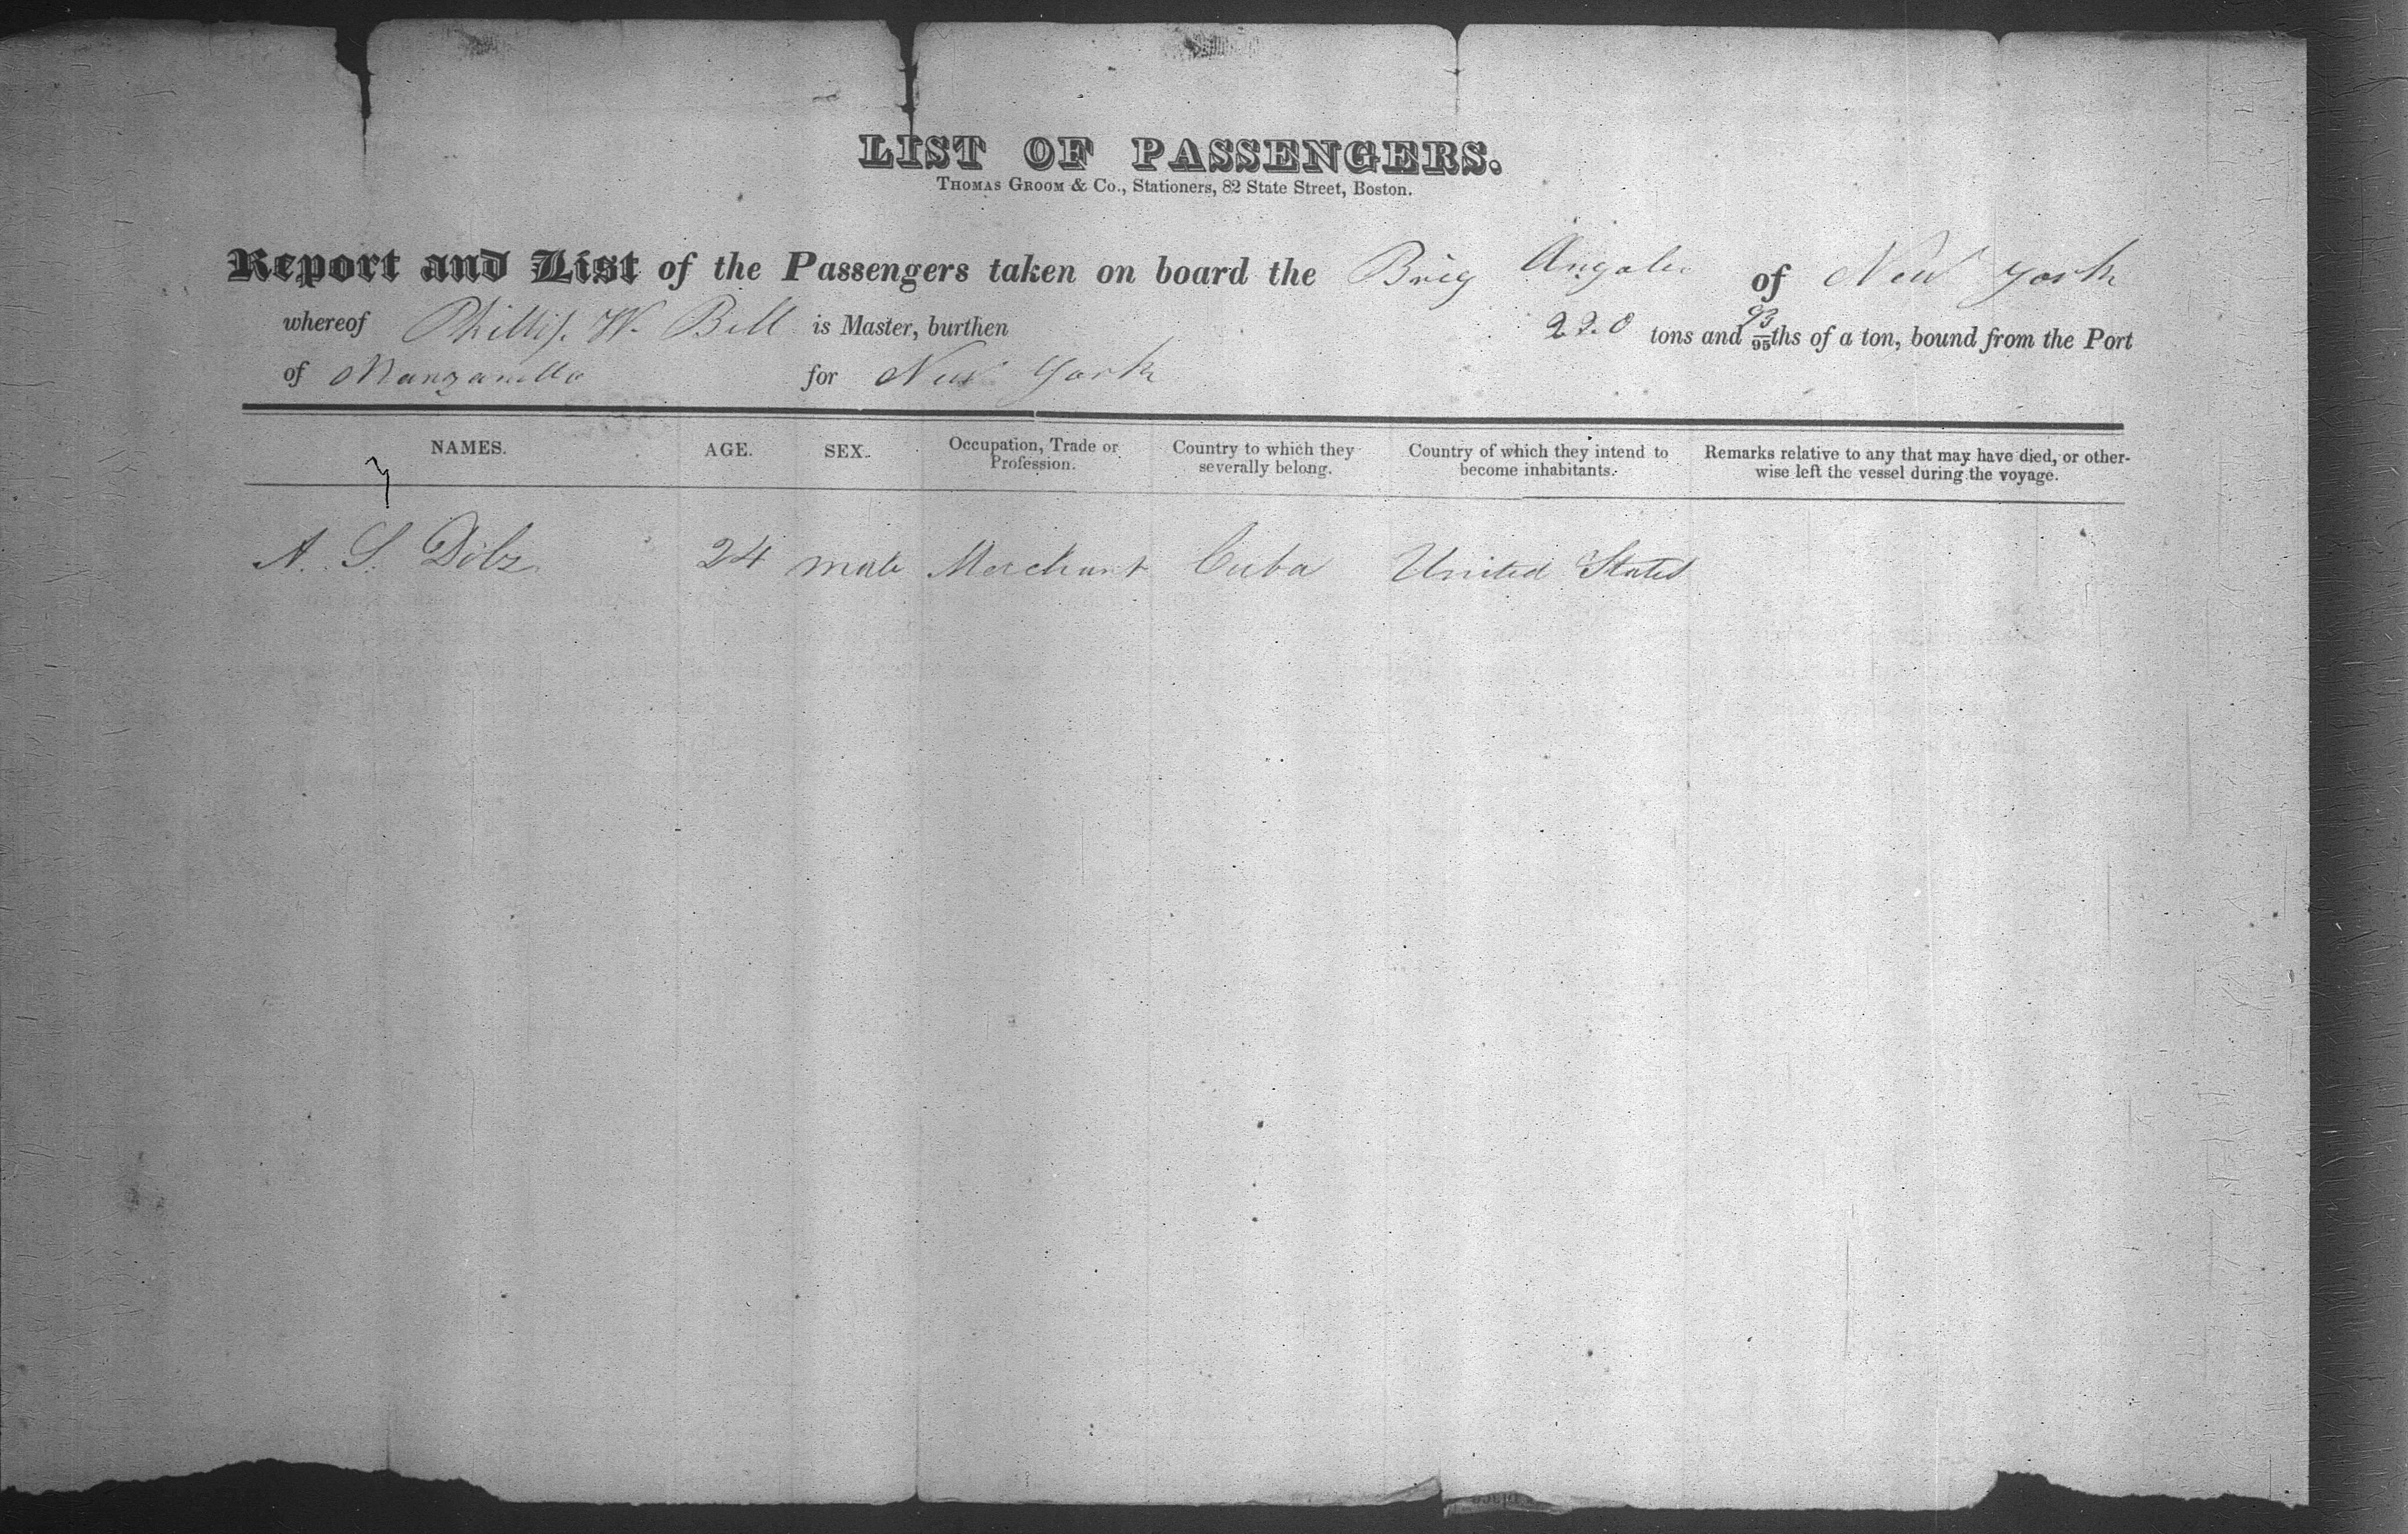 LIST OF PASSENGERS.
THOMAS GROOM & CO., Stationers, 82 State Street, Boston.
Report and List of the Passengers taken on board the Brig of New York
whereof Phillip W. Bill is Master, burthen 220 tons and 93/95ths of a ton, bound from the Port
of Manzanillo for New York
NAMES. AGE. SEX. Occupation, Trade or Profession. Country to which they severally belong. Country of which they intend to become inhabitants. Remarks relative to any that may have died, or otherwise left the vessel during the voyage.
A. S. 24 male Merchant Cuba United States